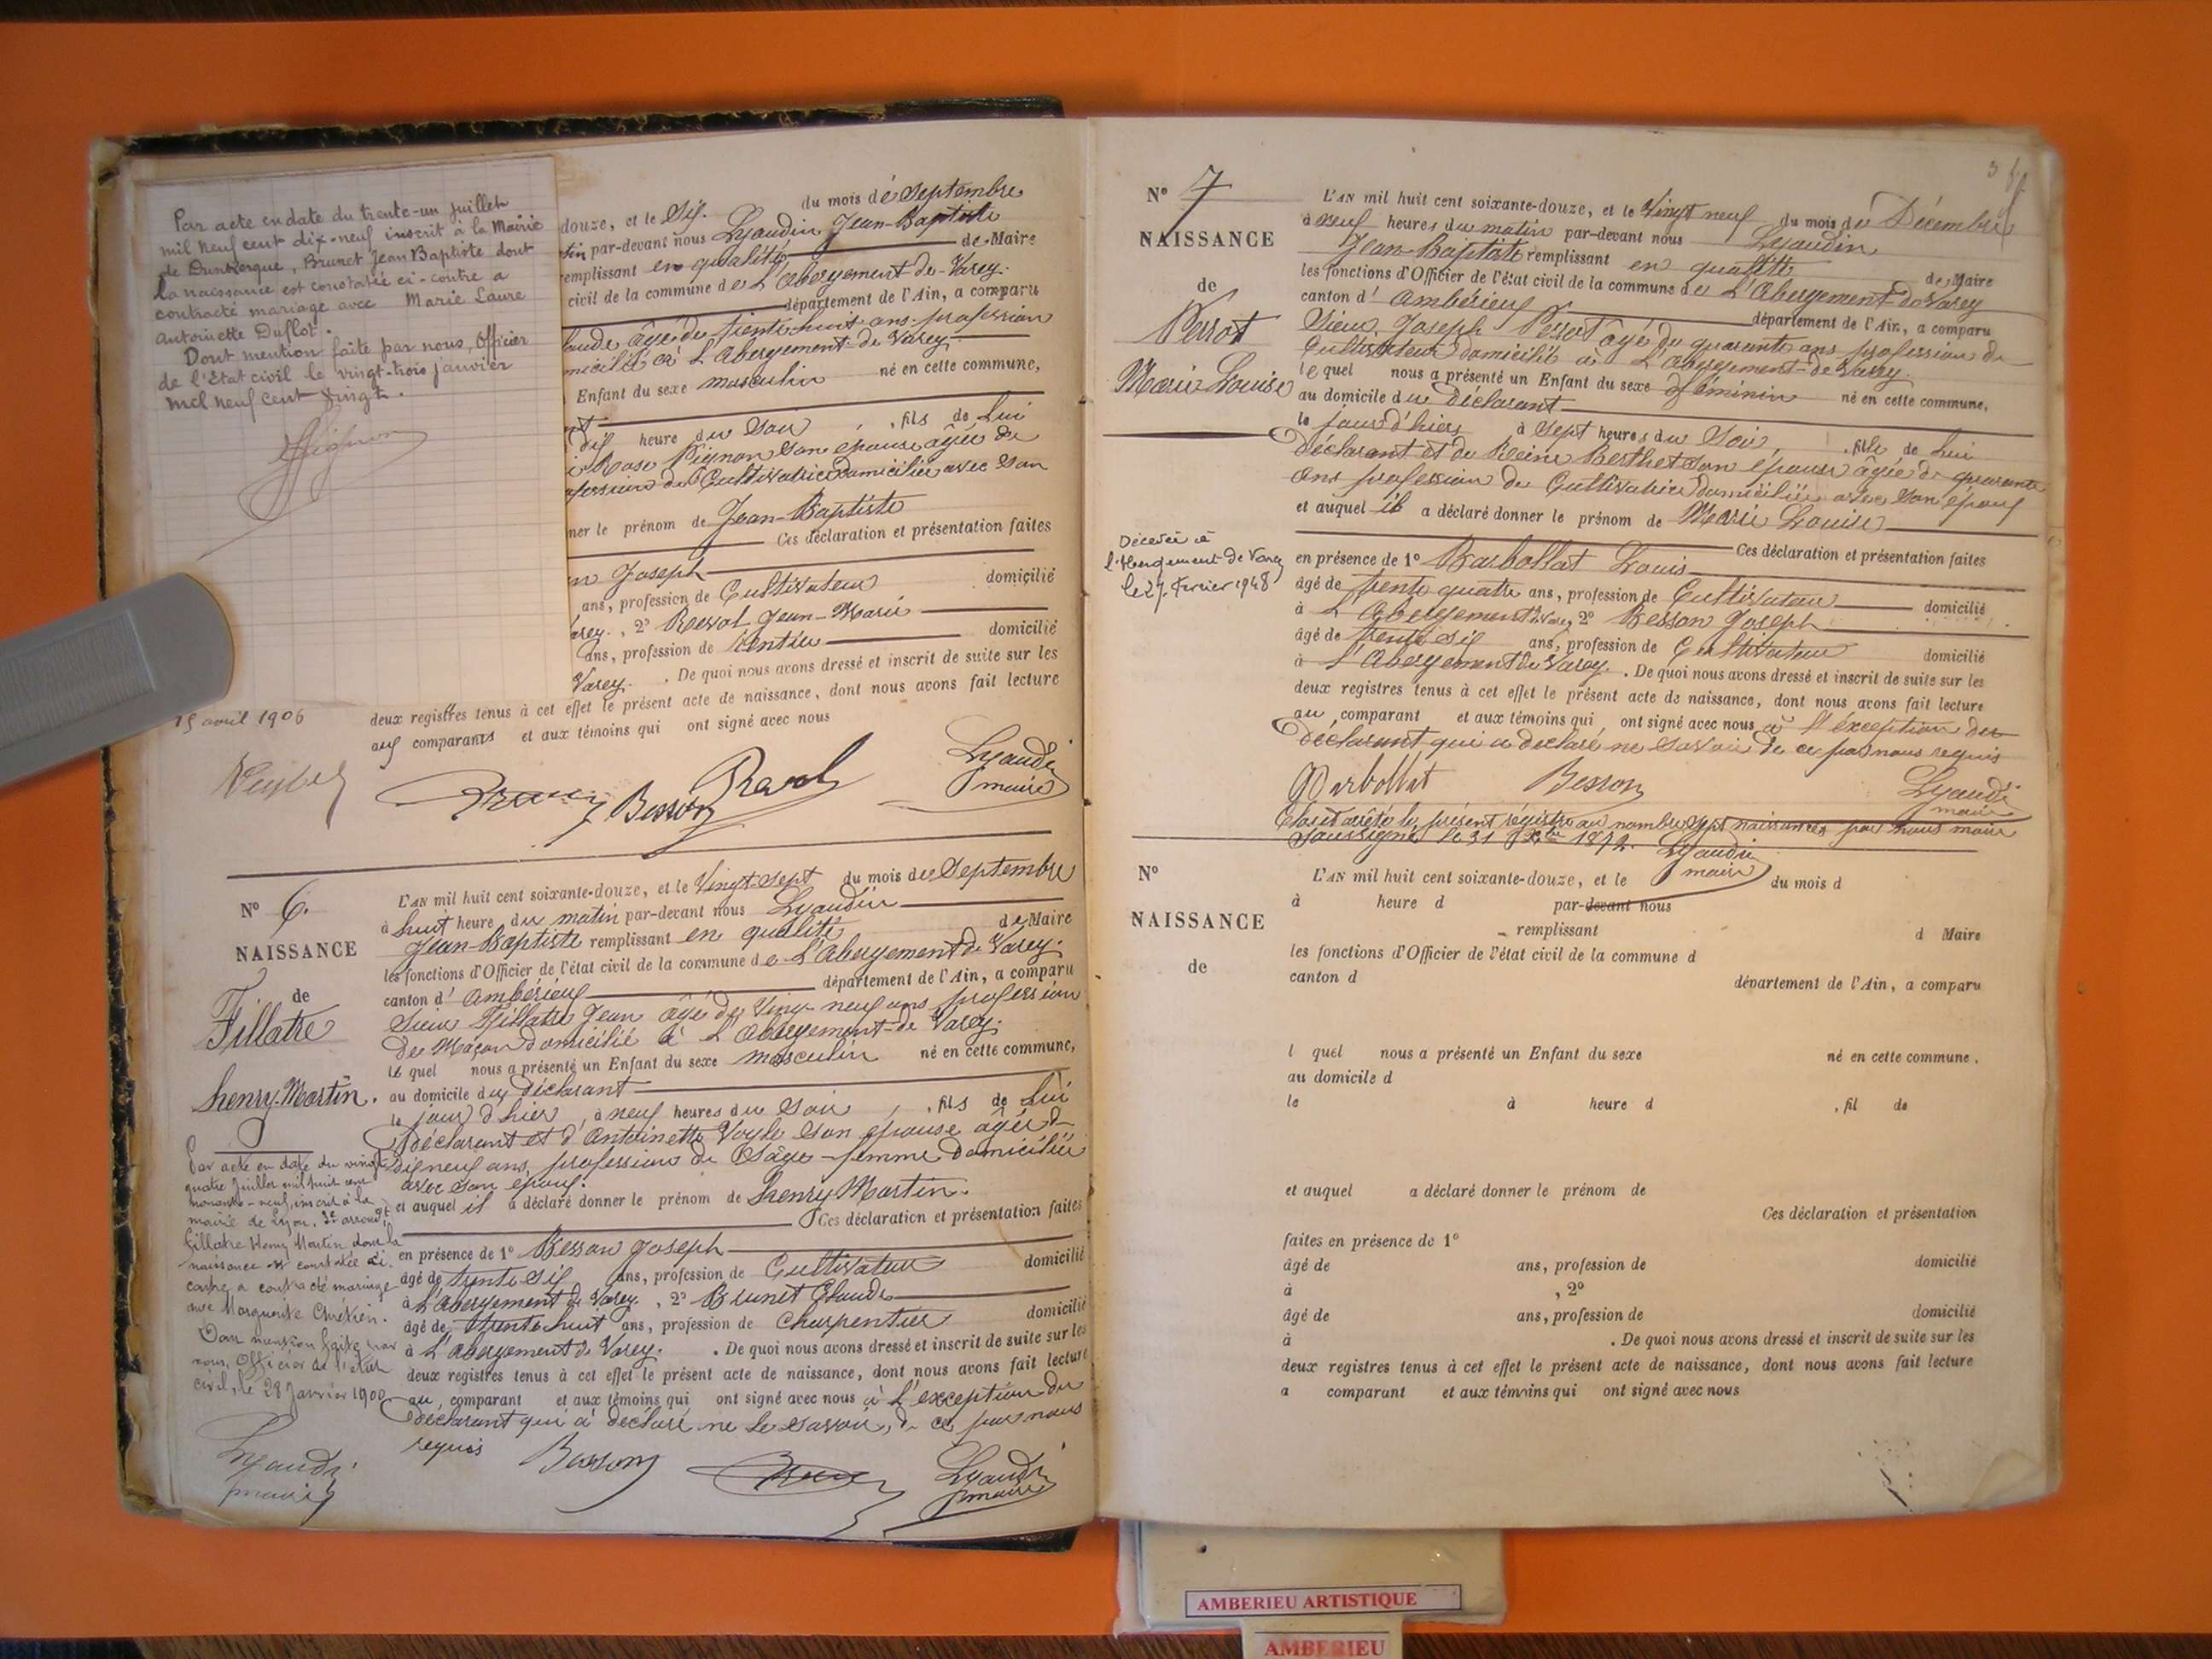 Par acte en date du trente-un juillet
mil neuf cent dix-neuf inscrit à la Mairie
de Dunkerque, Brunet Jean Baptiste dont
la naissance est constatée ci-contre a
contracté mariage avec Marie Laure
Antoinette Duflot.
Dont mention faite par nous, Officier
de l'Etat civil le vingt-trois janvier
mil neuf cent vingt.
du mois de Septembre
douze, et le Dix.
tin par-devant nous Lyaudin Jean-Baptiste
remplissant en qualité de Maire
civil de la commune de L'Abergement-de-Varey
département de l'Ain, a comparu
laude âgé de trente huit ans profession
micilié à L'Abergement-de Varey
Enfant du sexe masculin né en cette commune,
nt
dix heure du Soir, fils de Lui
Rose Pignon Son épouse âgée de
fession de Cultivatrice domiciliée avec Son
ner le prénom de Jean-Baptiste
Ces déclaration et présentation faites
n Joseph
ans, profession de Cultivateur domicilié
arey., 2° Revol Jean-Marie
ans, profession de rentier domicilié
Varey. . De quoi nous avons dressé et inscrit de suite sur les
deux registres tenus à cet effet le présent acte de naissance, dont nous avons fait lecture
aux comparants et aux témoins qui ont signé avec nous
15 avril 1906
Besson Revol Lyaudin
maire
N° 6.
NAISSANCE
de
Fillatre
henry-Martin.
L'AN mil huit cent soixante-douze, et le Vingt-Sept du mois de Septembre
à huit heure du matin par-devant nous Lyaudin
Jean-Baptiste remplissant en qualité de Maire
les fonctions d'Officier de l'état civil de la commune de L'Abergement de Varey.
canton d'Ambérieux département de l'Ain, a comparu
Sieur Fillatre Jean âgé de Ving-neuf ans profession
de Maçon domicilié à L'Abergement-de Varey.
le quel nous a présenté un Enfant du sexe masculin né en cette commune,
au domicile du déclarant
le jour d'hier, à neuf heures du Soir, fils de Lui
déclarant et d'Antoinette Son épouse âgée de
dix neuf ans, profession de Sage-femme domiciliée
avec Son époux.
et auquel il a déclaré donner le prénom de henry Martin.
Ces déclaration et présentation faites
en présence de 1° Besson Joseph
âgé de trente Six ans, profession de Cultivateur domicilié
à L'Abergement de Varey, 2° Brunet Claude
âgé de trente huit ans, profession de Charpentier domicilié
à L'Abergement de Varey. . De quoi nous avons dressé et inscrit de suite sur les
deux registres tenus à cet effet le présent acte de naissance, dont nous avons fait lecture
au comparant et aux témoins qui ont signé avec nous à L'exception du
déclarant qui a déclaré ne le Savoir, de ce par nous
requis
Par acte en date du vingt
quatre Juillet mil huit cent
nonante-neuf, inscrit à la
mairie de Lyon, 3e arrondt
Fillatre Henry Martin dont la
naissance est constatée ci-
contre a contracté mariage
avec Marguerite Chrétien.
Dont mention faite par
nous, Officier de l'état
civil, le 28 Janvier 1900
Lyaudin
maire
Besson Lyaudin
maire
N° 7
NAISSANCE
de
Perrot
Marie Louise
L'AN mil huit cent soixante-douze, et le Vingt neuf du mois de Décembre
à neuf heures du matin par-devant nous Lyaudin
Jean-Baptiste remplissant en qualité de Maire
les fonctions d'Officier de l'état civil de la commune de L'Abergement-de Varey
canton d'Ambérieux département de l'Ain, a comparu
Sieur Joseph Perrot âgé de quarante ans profession de
Cultivateur domicilié à L'Abergement-de Varey.
le quel nous a présenté un Enfant du sexe féminin né en cette commune,
au domicile du déclarant
le jour d'hier à Sept heures du Soir, fille de Lui
déclarant et de Reine Berthet Son épouse âgée de quarante
ans profession de Cultivatrice domiciliée avec Son époux
et auquel il a déclaré donner le prénom de Marie Louise
Ces déclaration et présentation faites
Décédée à
l'Abergement de Varey
le 27 Fevrier 1948
en présence de 1° Barbollat Louis
âgé de trente quatre ans, profession de Cultivateur domicilié
à L'Abergement de Varey 2° Besson Joseph
âgé de trente Six ans, profession de Cultivateur domicilié
à L'Abergement de Varey. . De quoi nous avons dressé et inscrit de suite sur les
deux registres tenus à cet effet le présent acte de naissance, dont nous avons fait lecture
au comparant et aux témoins qui ont signé avec nous à l'exception du
déclarant qui a déclaré ne Savoir de ce par nous requis
Barbollat Besson Lyaudin
maire
Clos et arrêté le présent régistre au nombre Sept naissances par nous maire
Soussigné le 31 Xbre 1872. Lyaudin
maire
N°
NAISSANCE
de
L'AN mil huit cent soixante-douze, et le du mois d
à heure d par-devant nous
remplissant d Maire
les fonctions d'Officier de l'état civil de la commune d
canton d département de l'Ain, a comparu
l quel nous a présenté un Enfant du sexe né en cette commune.
au domicile d
le à heure d , fil de
et auquel a déclaré donner le prénom de
Ces déclaration et présentation
faites en présence de 1°
âgé de ans, profession de domicilié
à , 2°
âgé de ans, profession de domicilié
à . De quoi nous avons dressé et inscrit de suite sur les
deux registres tenus à cet effet le présent acte de naissance, dont nous avons fait lecture
a comparant et aux témoins qui ont signé avec nous
AMBERIEU ARTISTIQUE
AMBERIEU